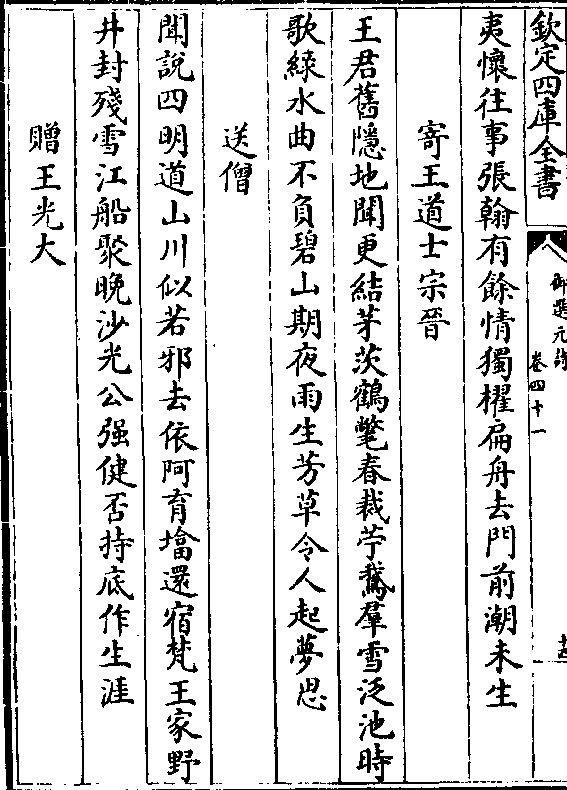 欽定四庫全書
御選元詩
卷四十一
夷懷往事張翰有餘情獨櫂扁舟去門前潮未生
寄王道士宗晉
王君舊隱地聞更結茅茨鶴氅春裁苧鵞羣雪泛池時
歌綠水曲不負碧山期夜雨生芳草令人起夢思
送僧
聞說四明道山川似若邪去依阿育墖還宿梵王家野
井封殘雪江船聚晚沙光公强健否持底作生涯
贈王光大